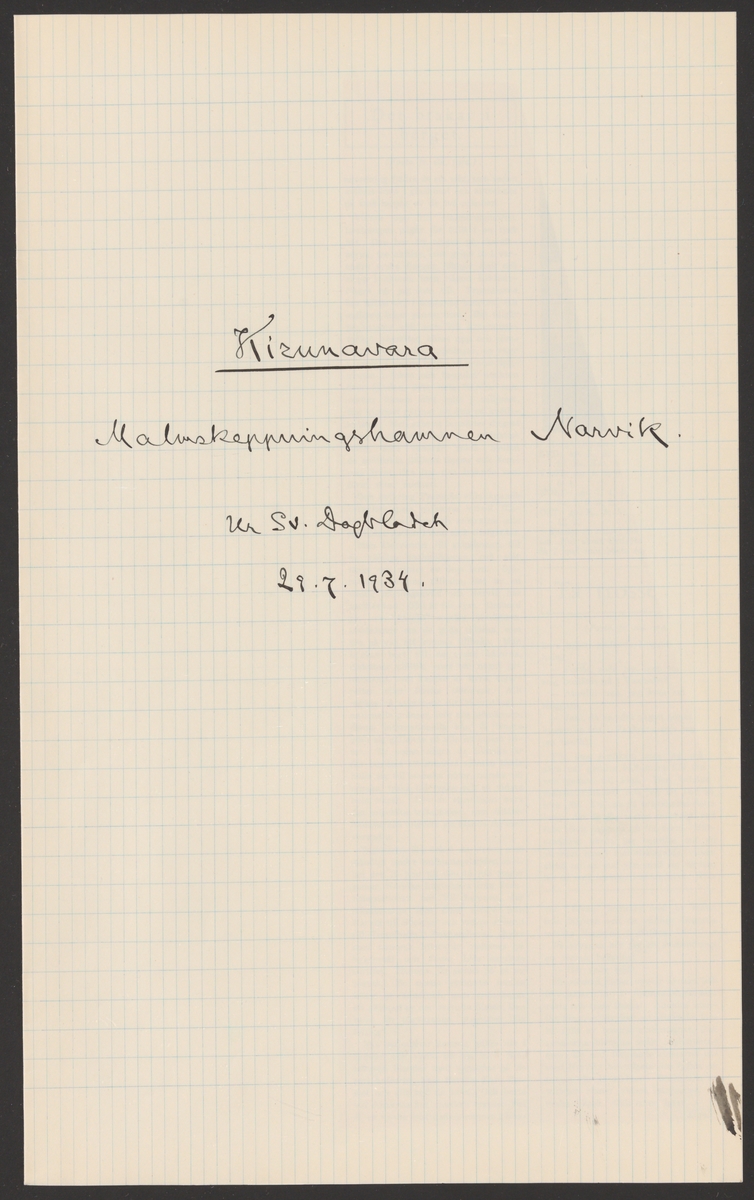 Kirunavara
Malmskeppningshamnen Narvik.
Ur Sv. Dagbladet
29.7.1934.